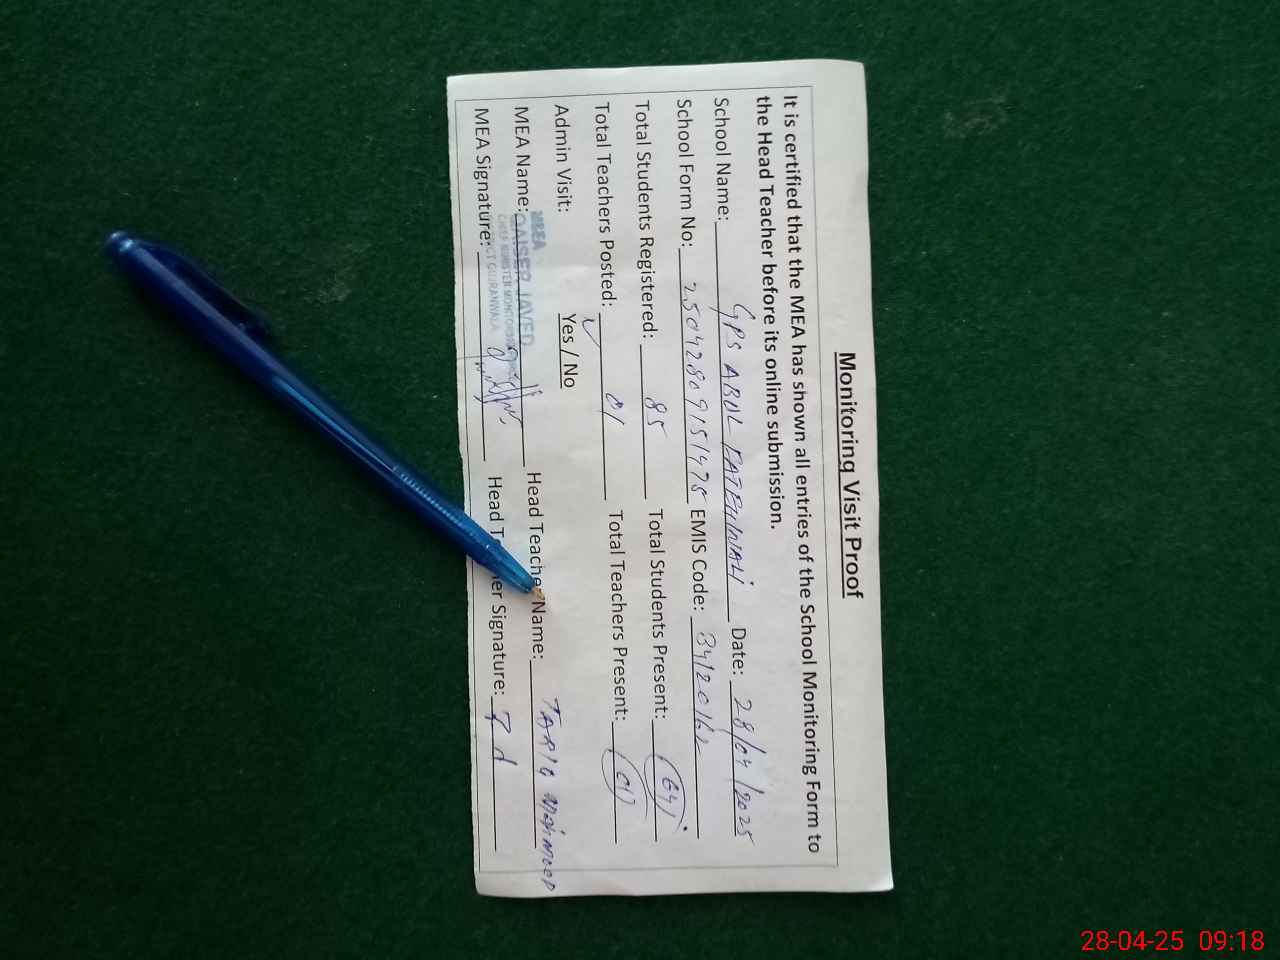 Monitoring Visit Proof
It is certified that the MEA has shown all entries of the School Monitoring Form to
the Head Teacher before its online submission.
School Name: GPS ABUL FATEHWALI Date: 28/04/2025
School Form No: EMIS Code:
Total Students Registered: 85 Total Students Present: (64)
Total Teachers Posted: 01 Total Teachers Present: (01)
Admin Visit: Yes / No
MEA
MEA Name: QAISER JAVED Head Teacher Name: TARIQ MAHMOOD
CHIEF MINISTER MONITORING
GUJRANWALA
MEA Signature: Head Teacher Signature:
28-04-25 09:18